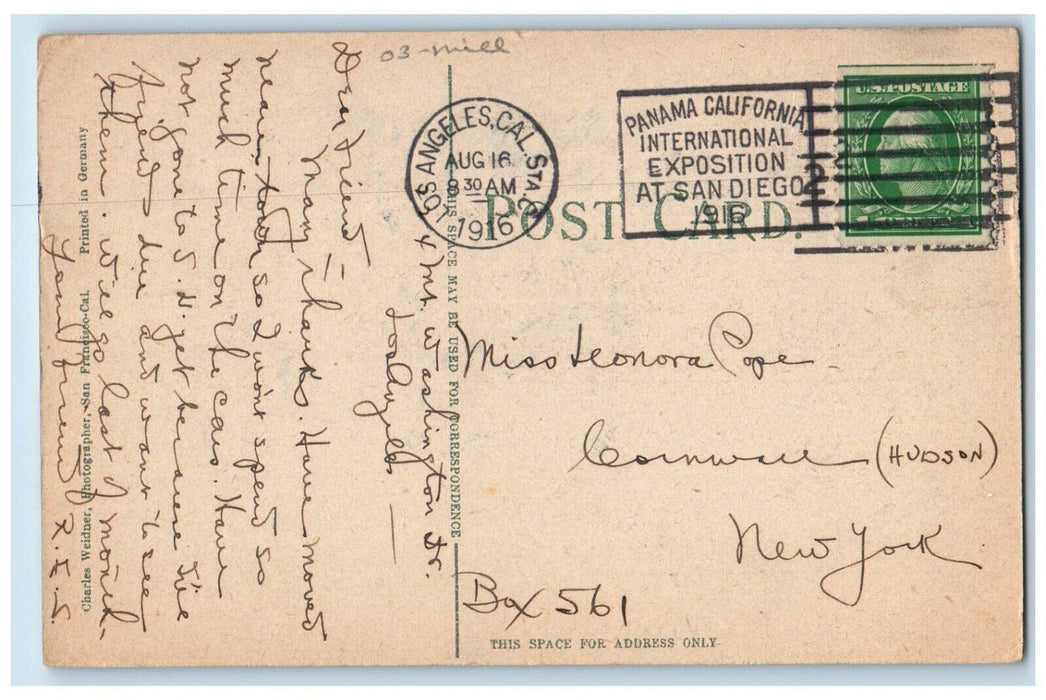 03-mill
LOS ANGELES, CAL. STA. C
AUG 16
8 30 AM
1916
PANAMA CALIFORNIA
INTERNATIONAL
EXPOSITION
AT SAN DIEGO
1916
U.S. POSTAGE
POST CARD.
THIS SPACE MAY BE USED FOR CORRESPONDENCE
Miss Leonora Pope
Cornwall (HUDSON)
New York
Box 561
THIS SPACE FOR ADDRESS ONLY
4 Mt. Washington Dr.
Los Angeles
Dear Friend -
Many thanks. Have moved
nearer town so I won't spend so
much time on the cars. Have
not gone to S. D. yet because I've
friend due and want to see
them. Will go last of month.
Your friend
R. E. S.
Charles Weidner, Photographer, San Francisco-Cal. Printed in Germany